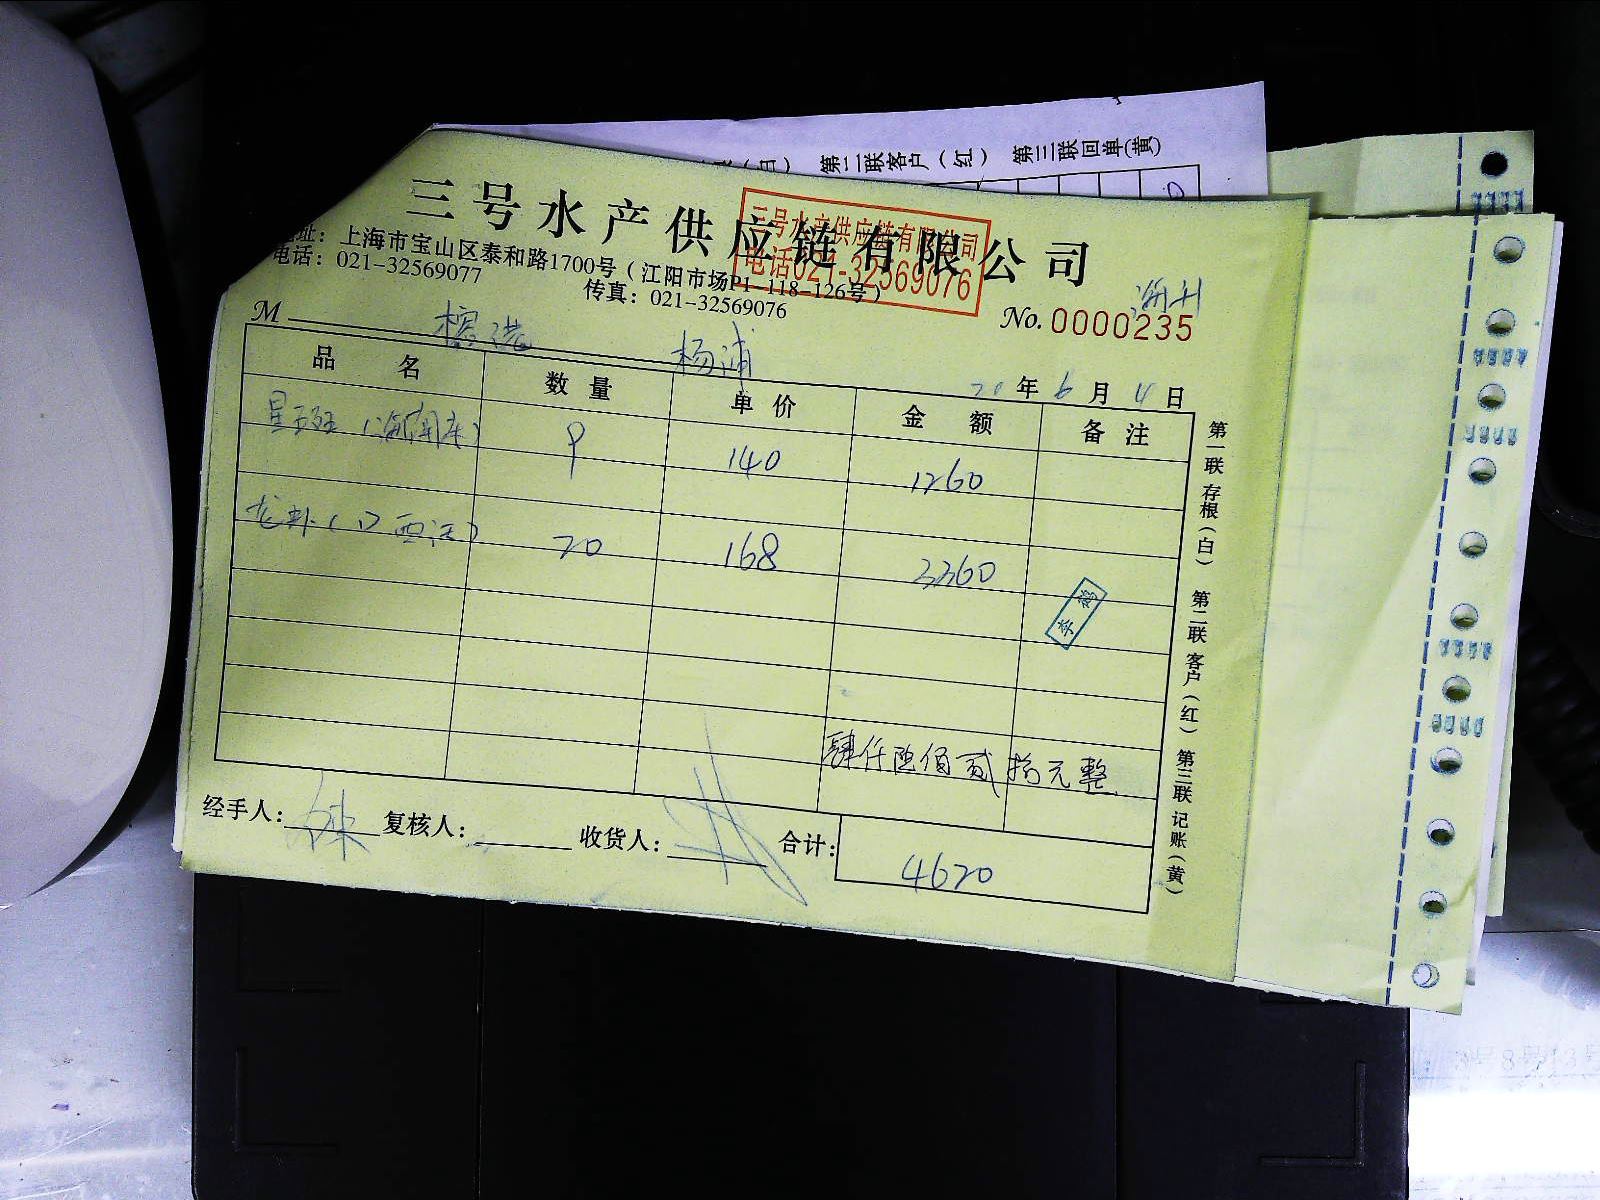 第二联客户(红) 第三联回单(黄)
三号水产供应链有限公司
三号水产供应链有限公司
电话021-32569076
址:上海市宝山区泰和路1700号(江阳市场P1-118-126号)
电话:021-32569077 传真:021-32569076
M 杨浦
No.0000235
20年6月4日
品名 数量 单价 金额 备注
星王斑 9 140 1260
20 168 3360
肆仟陆佰贰拾元整
经手人: 复核人: 收货人: 合计: 4620
第一联存根(白) 第二联客户(红) 第三联记账(黄)